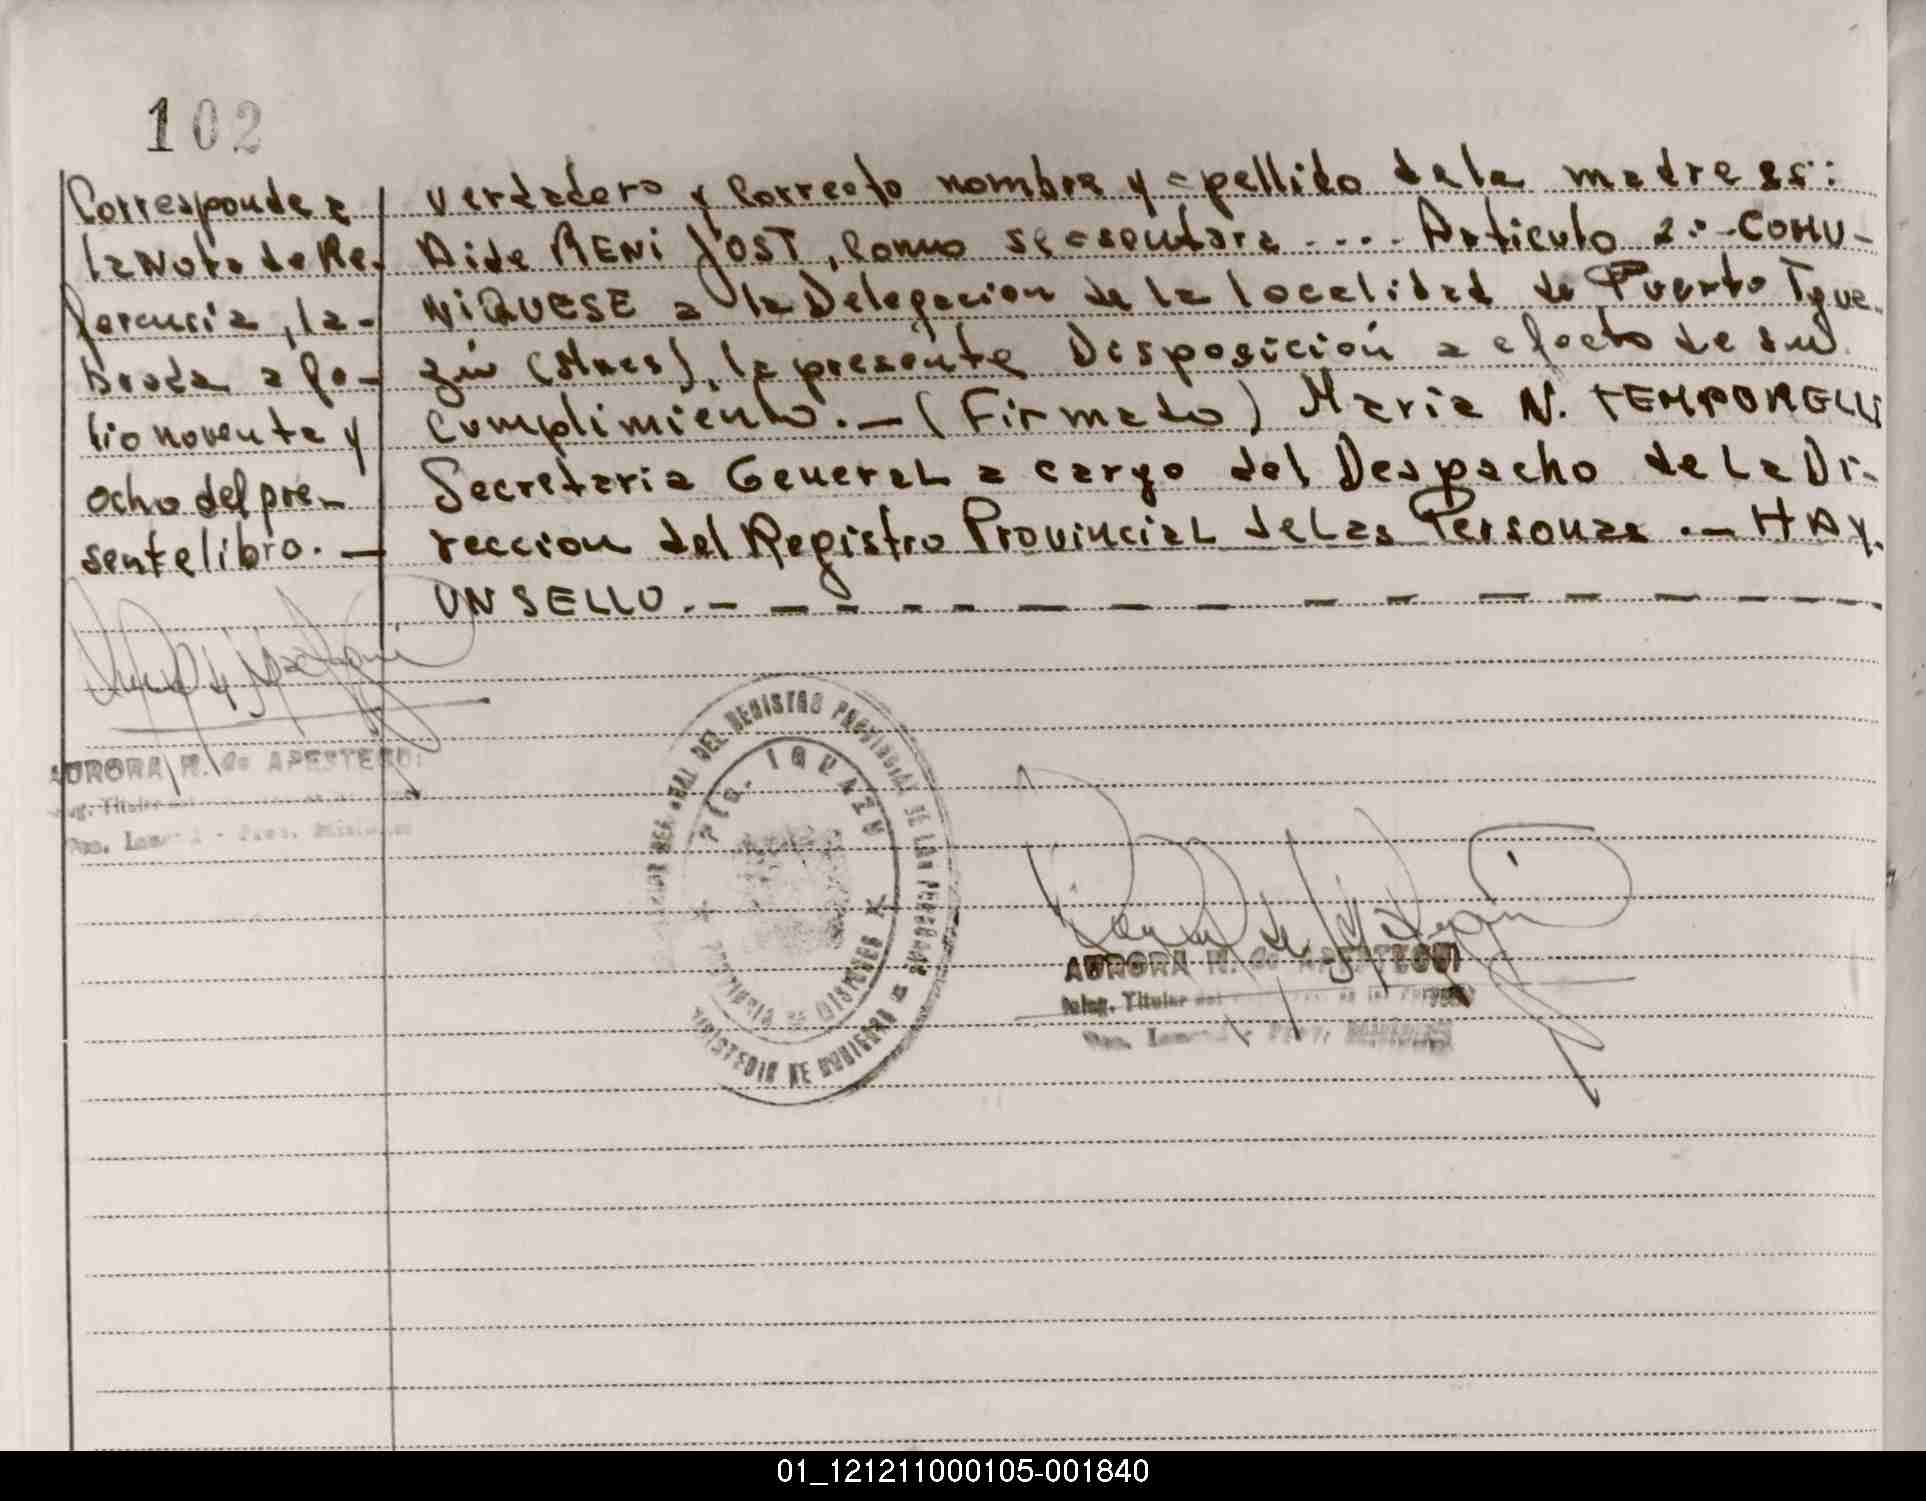 102
Corresponde a
la Nota de Re-
ferencia, la-
brada a fo-
lio noventa y
ocho del pre-
sente libro. —
verdadero y correcto nombre y apellido de la madre es:
Aide RENi JOST, como se asentara .... Articulo 2º - COMU-
NiQUESE a la Delegacion de la localidad de Puerto Igua-
zú (Mnes), la presente Disposición a efecto de su
cumplimiento. — (Firmado) Maria N. TEMPORELLI
Secretaria General a cargo del Despacho de la Di-
reccion del Registro Provincial de las Personas. — HAY
UN SELLO. — — — — — — — — — — — — — —
AURORA N. de APESTEGUI
Titular
DEL REGISTRO PROVINCIAL DE LAS PERSONAS
PTO. IGUAZU
PROVINCIA DE MISIONES
MINISTERIO DE GOBIERNO
AURORA N. de APESTEGUI
Deleg. Titular
01_121211000105-001840